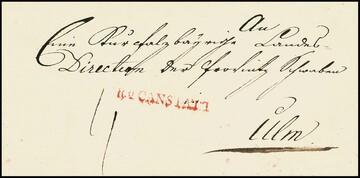 An
Eine Kurpfalzbayrische Landes-
Direction der Provintz Schwaben
R. CANSTATT
Ulm